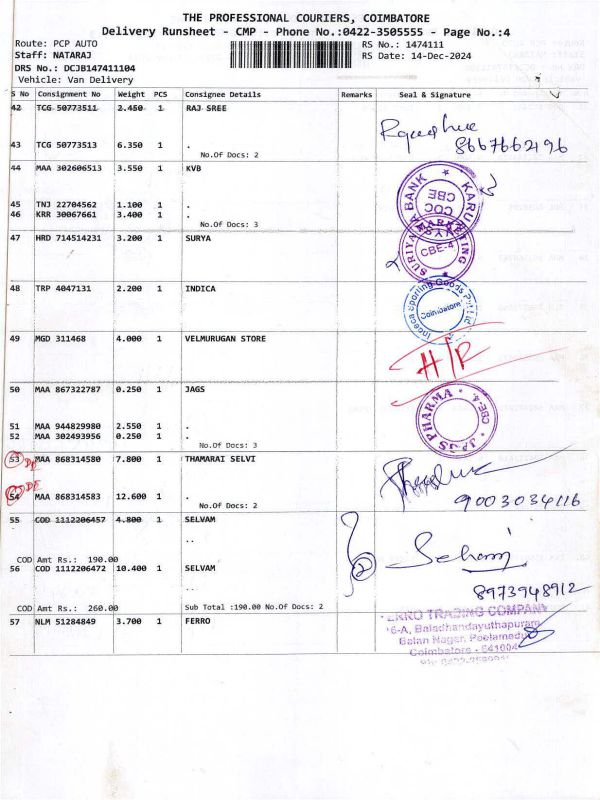 THE PROFESSIONAL COURIERS, COIMBATORE
Delivery Runsheet - CMP - Phone No.:0422-3505555 - Page No.:4
Route: PCP AUTO RS No.: 1474111
Staff: NATARAJ RS Date: 14-Dec-2024
DRS No.: DCJB147411104
Vehicle: Van Delivery
S No Consignment No Weight PCS Consignee Details Remarks Seal & Signature
42 TCG 50773511 2.450 1 RAJ SREE
8667662196
43 TCG 50773513 6.350 1 .
No.Of Docs: 2
44 MAA 302606513 3.550 1 KVB
KARUR VYSYA BANK
COC
CBE
45 TNJ 22704562 1.100 1 .
46 KRR 30067661 3.400 1 .
No.Of Docs: 3
47 HRD 714514231 3.200 1 SURYA
SURIYA MARKETING
CBE-4
48 TRP 4047131 2.200 1 INDICA
Sporting Goods Pvt Ltd
Coimbatore
49 MGD 311468 4.000 1 VELMURUGAN STORE
H/R
50 MAA 867322787 0.250 1 JAGS
JAGS PHARMA
CBE-4
51 MAA 944829980 2.550 1 .
52 MAA 302493956 0.250 1 .
No.Of Docs: 3
53 MAA 868314580 7.800 1 THAMARAI SELVI
54 MAA 868314583 12.600 1 .
No.Of Docs: 2
9003034116
55 COD 1112206457 4.800 1 SELVAM
..
COD Amt Rs.: 190.00
56 COD 1112206472 10.400 1 SELVAM
2
..
8973948912
COD Amt Rs.: 260.00 Sub Total :190.00 No.Of Docs: 2
57 NLM 51284849 3.700 1 FERRO
TRADING COMPANY
6-A, Baladhandayuthapuram
Balan Nagar, Peelamedu
Coimbatore - 641004